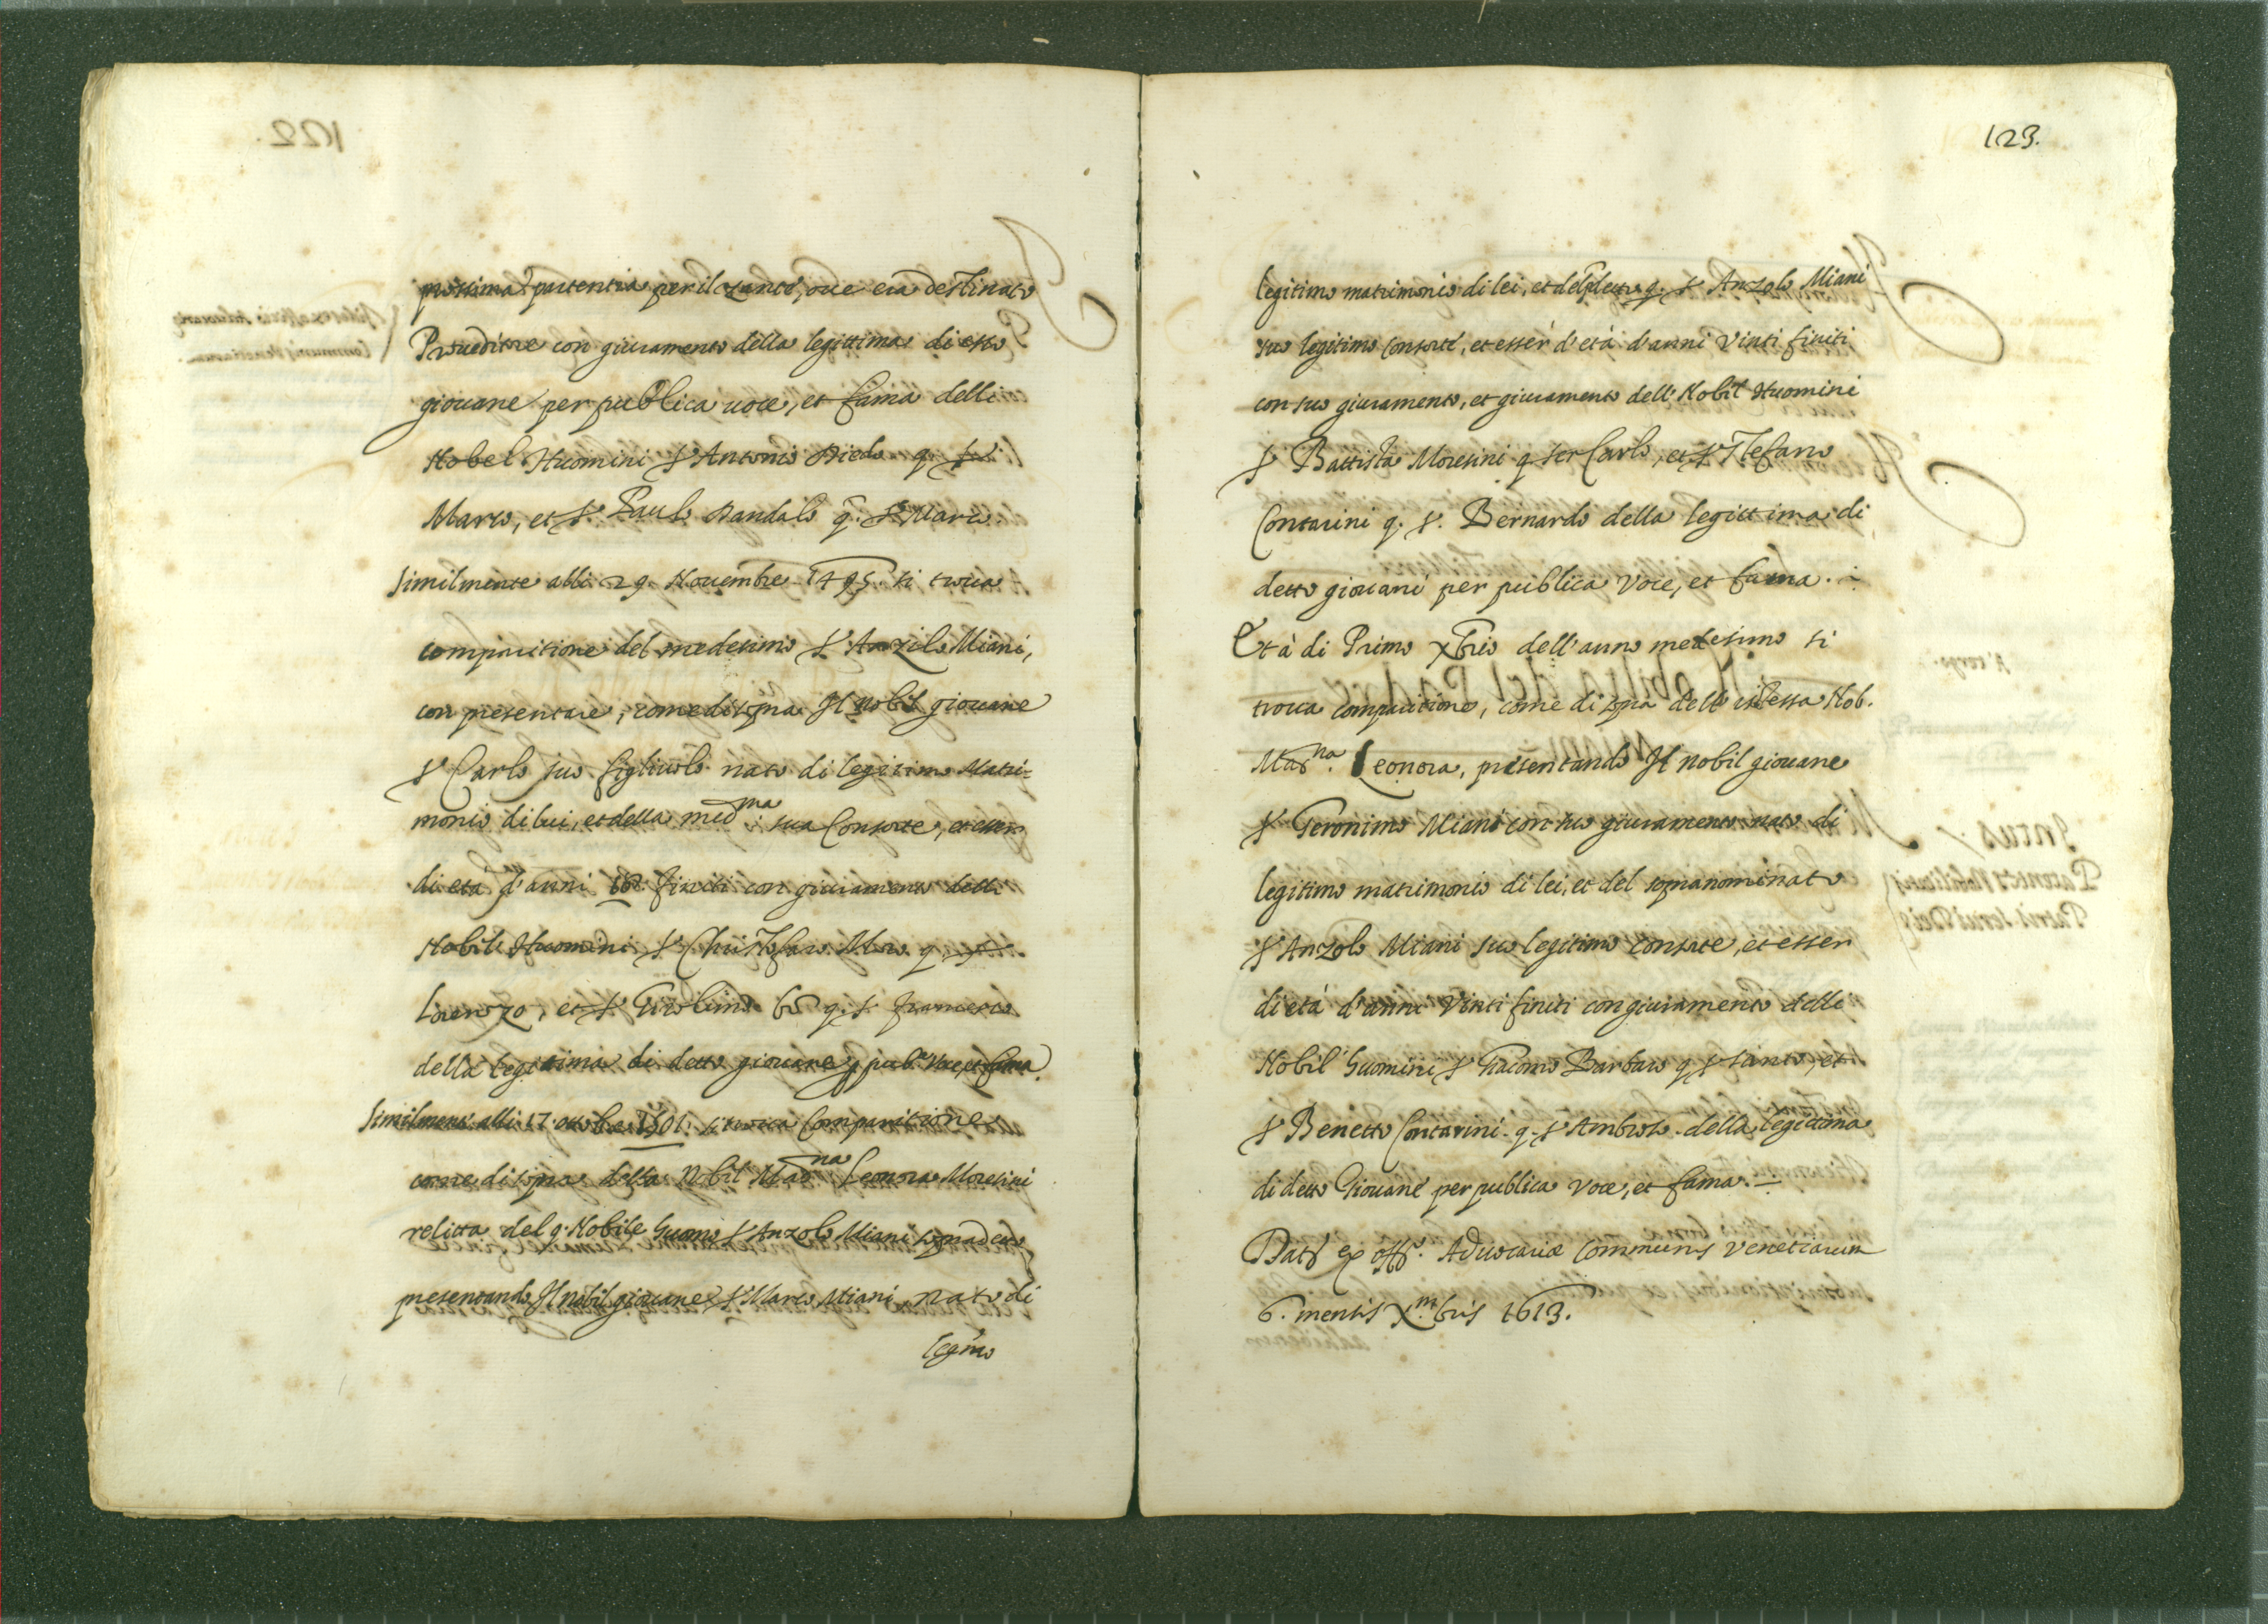 prossima partentia per il Zante, oue era destinato
Proueditore con giuramento della legittima di esso
giouane per publica uoce, et fama delli
Nobel Huomini Sr Antonio Diedo q. Sr
Marco, et Sr Paulo Dandalo q. Sr Marco.
Similmente alli 29 Nouembre 1495 si troua
comparitione del medesimo Sr Anzilo Miani,
con presentare, come di sopra Il Nobil giouane
Sr Carlo suo figliuolo nato di legitimo Matri-
monio di lui, et della med.ma sua Consorte, et esser
di età d'anni 18 finiti con giuramento delli
Nobili Huomini Sr Christofaro Moro q. Sr
Lorenzo, et Sr Girolimo q. Sr Francesco
della legitima di detto giouane p pub.ca Voce, et fama.
Similment' alli 17 ottobre 1501 si troua Comparitione
come di sopra della Nobil Mad.na Leonora Moresini
relitta del q. Nobile huomo Sr Anzolo Miani sopradetto
presentando Il nobil giouane Sr Marco Miani nato di
leg.mo
123.
legitimo matrimonio di lei, et del predetto q. Sr Anzolo Miani
suo legitimo consorte, et esser d'età d'anni Vinti finiti
con suo giuramento, et giuramento dell' Nobil Huomini
Sr Battista Moresini q ser Carlo, et Sr Stefano
Contarini q. Sr. Bernardo della legittima di
detto giouani per publica Voce, et fama.
Et à di Primo Xbrio dell'anno medesimo si
troua comparitione, come di sopra dell' istessa Nob.
Mad.na Leonora, presentando Il nobil giouane
Sr Geronimo Miani con suo giuramento nato di
legitimo matrimonio di lei, et del sopranominato
Sr Anzolo Miani suo legitimo consorte, et esser
di età d'anni Vinti finiti con giuramento delli
Nobil' huomini Sr Giacomo Barbaro q Sr Santo, et
Sr Benetto Contarini q. Sr Ambroso della legittima
di detto Giouane per publica Voce, et fama.
Dat̃ ex off.o Aduocariæ Communis Venetiarum
6. mensis X.mbris 1613.